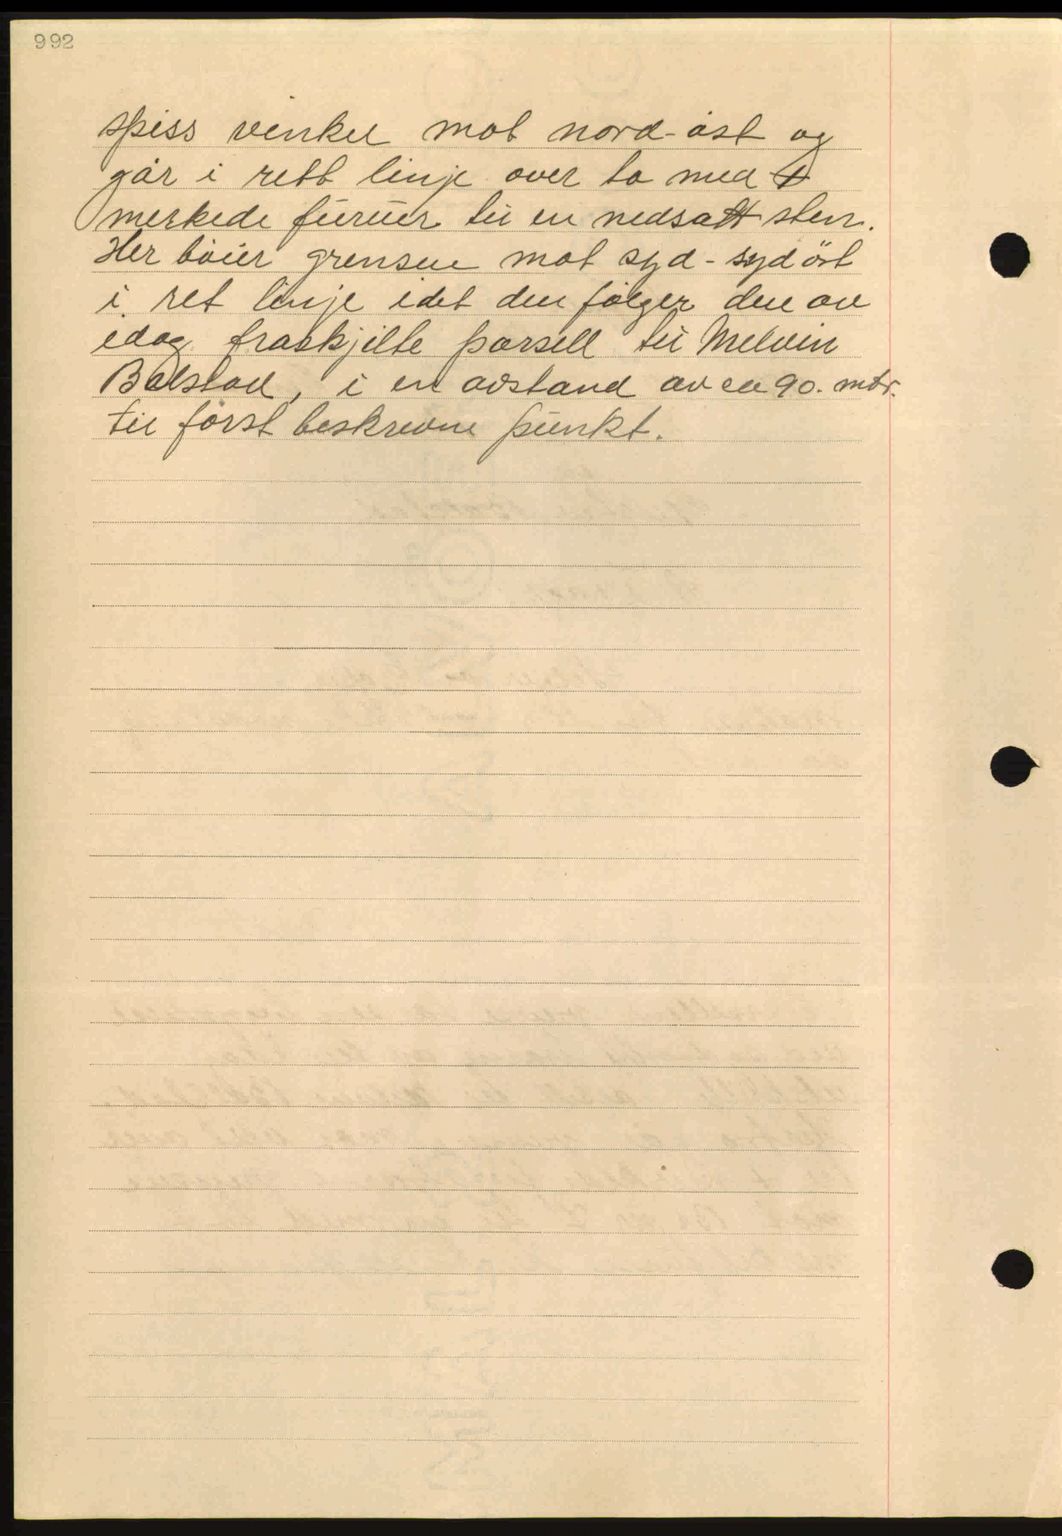 992
spiss vinkel mot nord-øst og
går i rett linje over to med +
merkede furuer til en nedsatt sten.
Her bøier grensen mot syd-sydöst
i ret linje idet den følger den av
idag fraskjilte parsell til Melvin
Bolstad, i en avstand av ca 90. mtr.
til först beskrevne punkt.